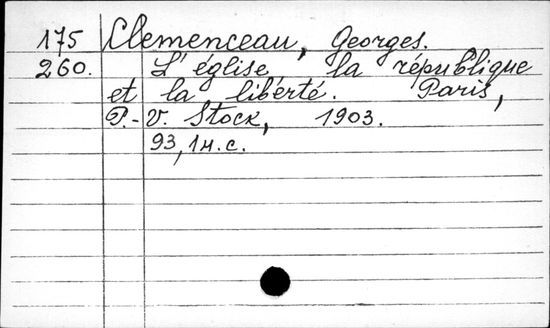 175 Clemenceau, Georges.
260. L'église, la république
et la liberté. Paris,
P.-V. Stock, 1903.
93, 1 н.с.